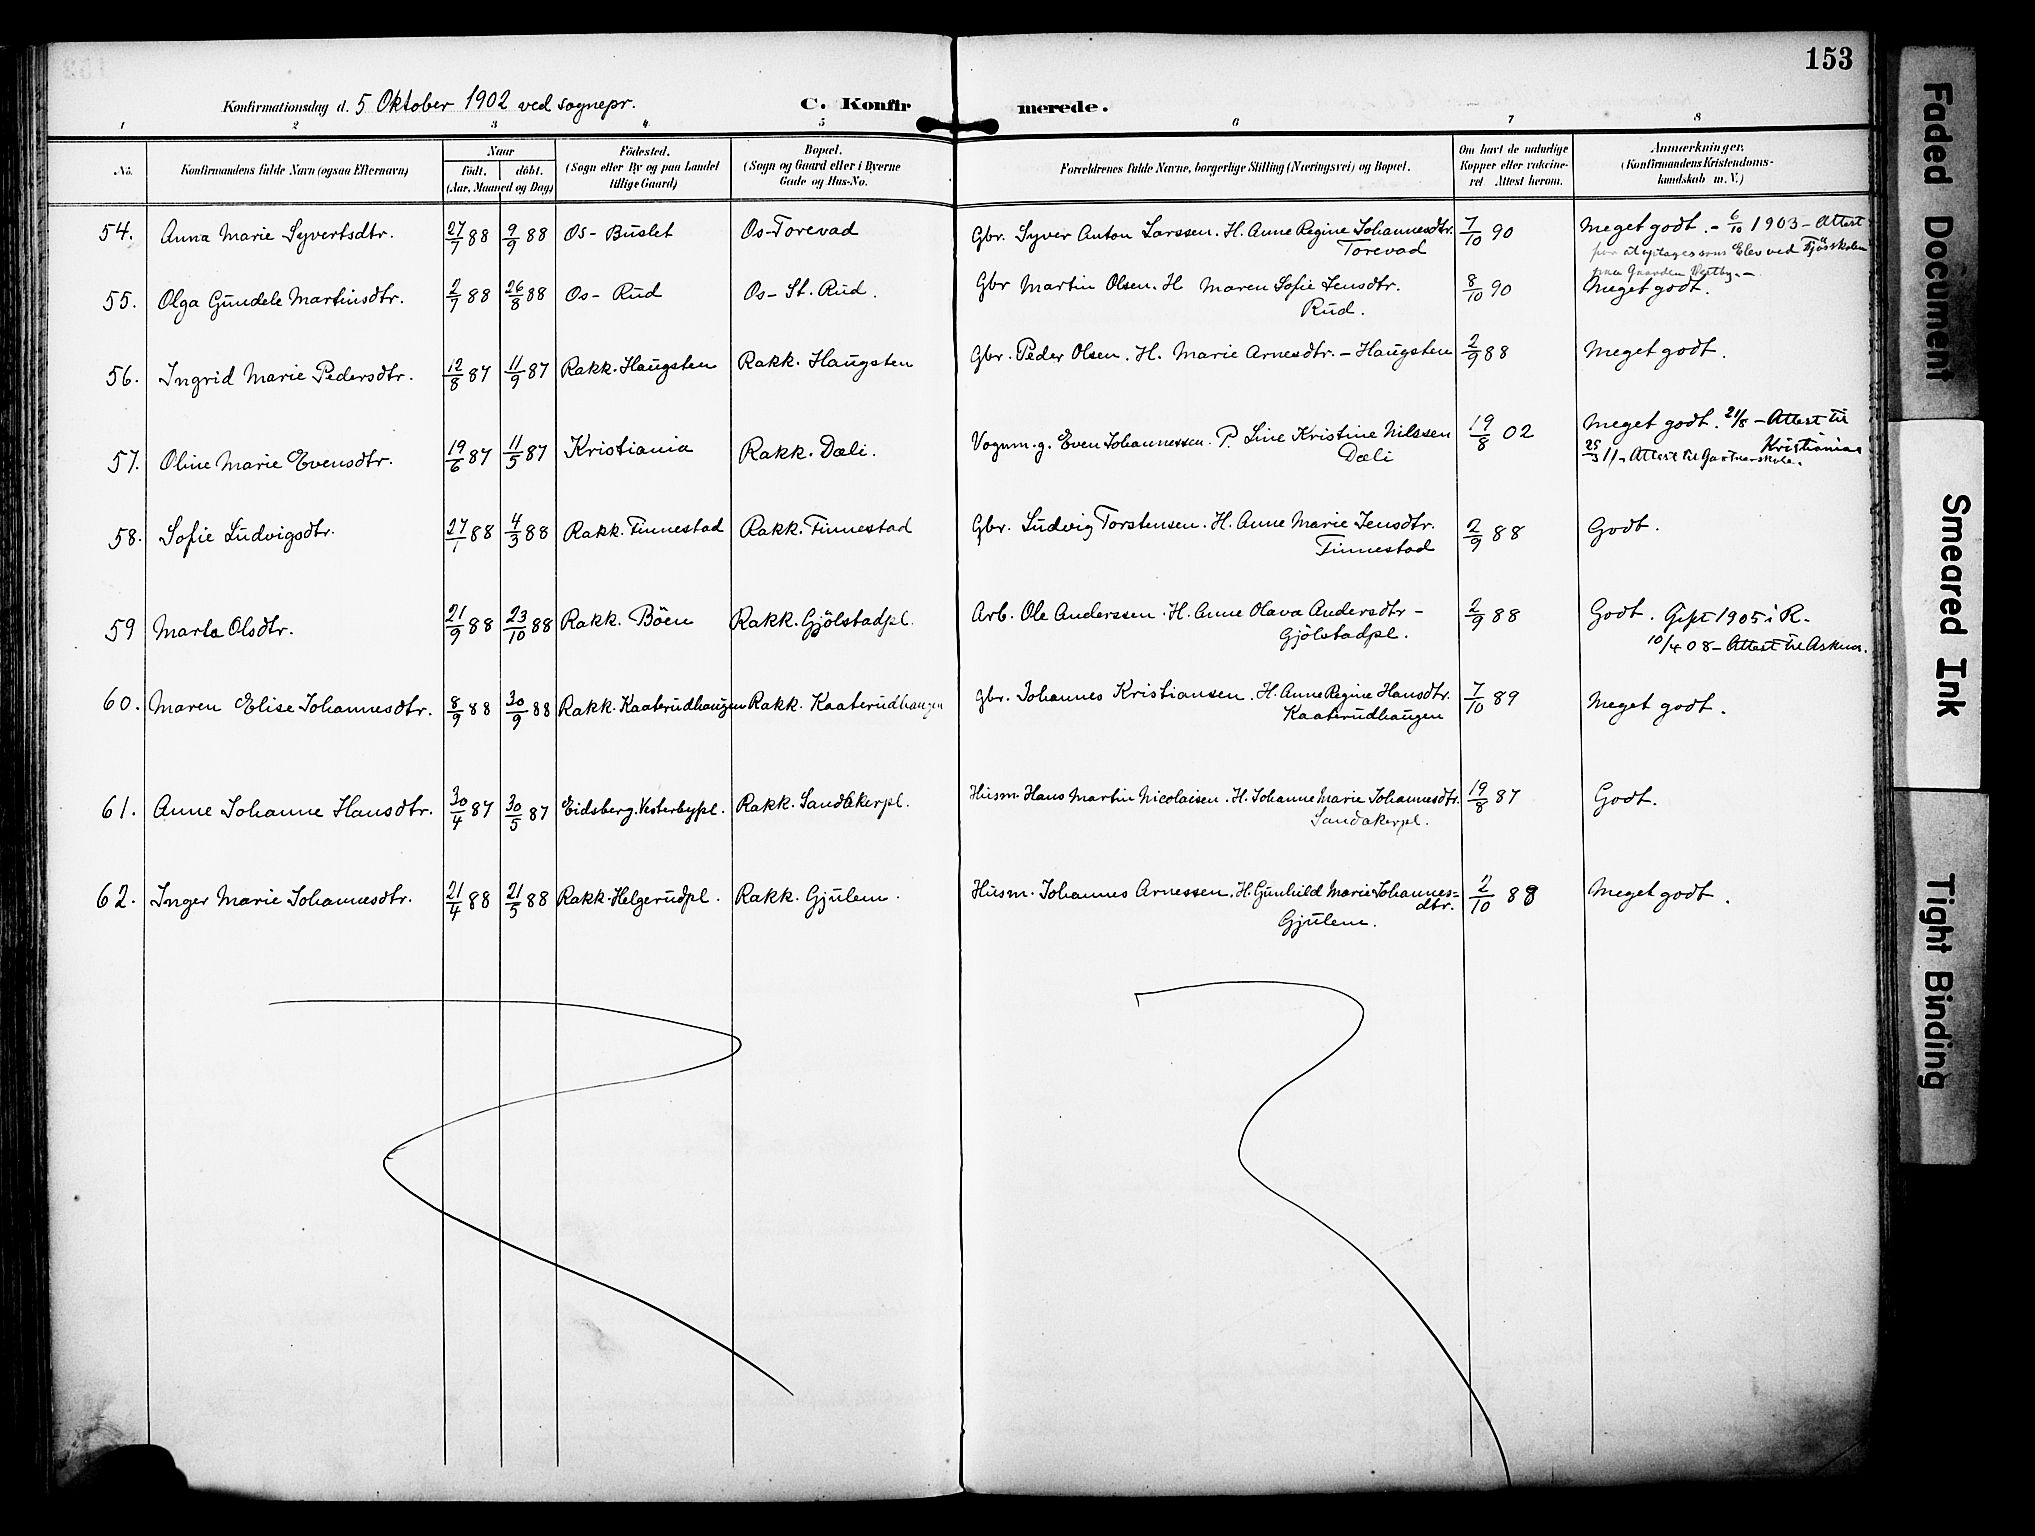 153
Konfirmationsdag d. 5 Oktober 1902 ved sognepr. C. Konfirmerede.
1 2 3 4 5 6 7 8
No. Konfirmandens fulde Navn (ogsaa Efternavn) Naar födt. döbt. (Aar, Maaned og Dag) Födested. (Sogn eller By og paa Landet tillige Gaard) Bopæl. (Sogn og Gaard eller i Byerne Gade og Hus-No. Forældrenes fulde Navne, borgerlige Stilling (Næringsvei) og Bopæl. Om havt de naturlige Kopper eller vakcineret Attest herom. Anmærkninger. (Konfirmandens Kristendomskundskab m. V.)
54. Anna Marie Syvertsdtr. 27/7 88 9/9 88 Os- Buslet Os-Torevad Gbr. Syver Anton Larssen. H. Anne Regine Johannesdtr. 7/10 90 Meget godt. - 6/10 1903 - Attest
Torevad for at optages som Elev ved Fjösskolen
paa Gaarden
55. Olga Gundele Martinsdtr. 2/7 88 26/8 88 Os- Rud Os- St. Rud. Gbr Martin Olsen. H Maren Sofie Jensdtr. 8/10 90 Meget godt.
Rud.
56. Ingrid Marie Pedersdtr. 12/8 87 11/9 87 Rakk. Haugsten Rakk. Haugsten Gbr. Peder Olsen. H. Marie Arnesdtr. - Haugsten 2/9 88 Meget godt.
57. Oline Marie Evensdtr. 19/6 87 11/5 87 Kristiania Rakk. Dæli. Vognm.g. Even Johannessen. P. Line Kristine Nilssen 19/8 02 Meget godt. 21/8 - Attest til
Dæli Kristiania
25/3 11 - Attest til
58. Sofie Ludvigsdtr. 27/1 88 4/3 88 Rakk. Finnestad Rakk. Finnestad Gbr. Ludvig Torstensen. H. Anne Marie Jensdtr. 2/9 88 Godt.
Finnestad
59 Marta Olsdtr. 21/9 88 23/10 88 Rakk. Böen Rakk. Gjölstadpl. Arb. Ole Anderssen. H. Anne Olava Andersdtr - 2/9 88 Godt. Gift 1905 i R.
Gjölstadpl. 10/4 08 - Attest til Askim.
60. Maren Elise Johannesdtr. 8/9 88 30/9 88 Rakk. Kaaterudhaugen Rakk. Kaaterudhaugen Gbr. Johannes Kristiansen. H. Anne Regine Hansdtr. 7/10 89 Meget godt.
Kaaterudhaugen
61. Anne Johanne Hansdtr. 30/4 87 30/5 87 Eidsberg. Vesterbypl. Rakk. Sandakerpl. Husm. Hans Martin Nicolaisen. H. Johanne Marie Johannesdtr. 19/8 87 Godt.
Sandakerpl.
62. Inger Marie Johannesdtr. 21/4 88 21/5 88 Rakk. Helgerudpl. Rakk. Gjulem. Husm. Johannes Arnessen. H. Gunhild Marie Johannes= 2/10 88 Meget godt.
dtr.
Gjulem.
Faded Document
Smeared Ink
Tight Binding